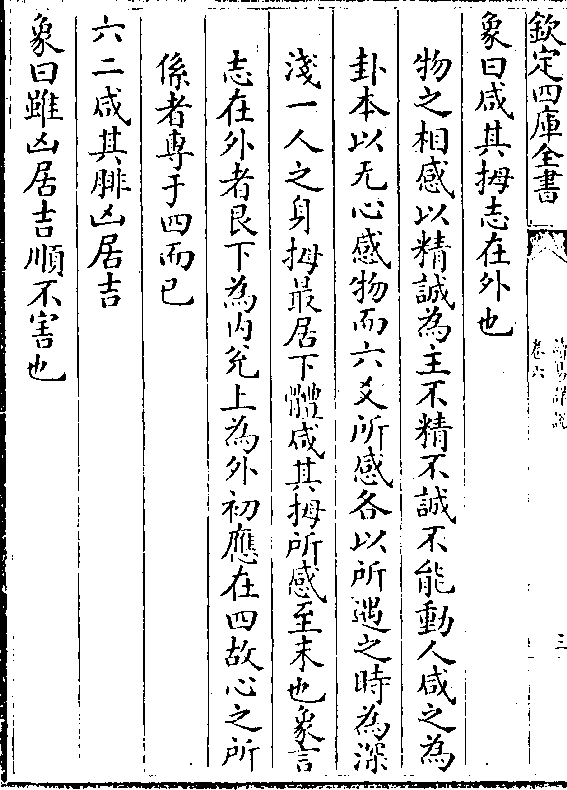 欽定四庫全書
卷六
三
象曰咸其拇志在外也
物之相感以精誠為主不精不誠不能動人咸之為
卦本以无心感物而六爻所感各以所遇之時為深
淺一人之身拇最居下體咸其拇所感至末也象言
志在外者艮下為內兊上為外初應在四故心之所
係者專于四而已
六二咸其腓凶居吉
象曰雖凶居吉順不害也